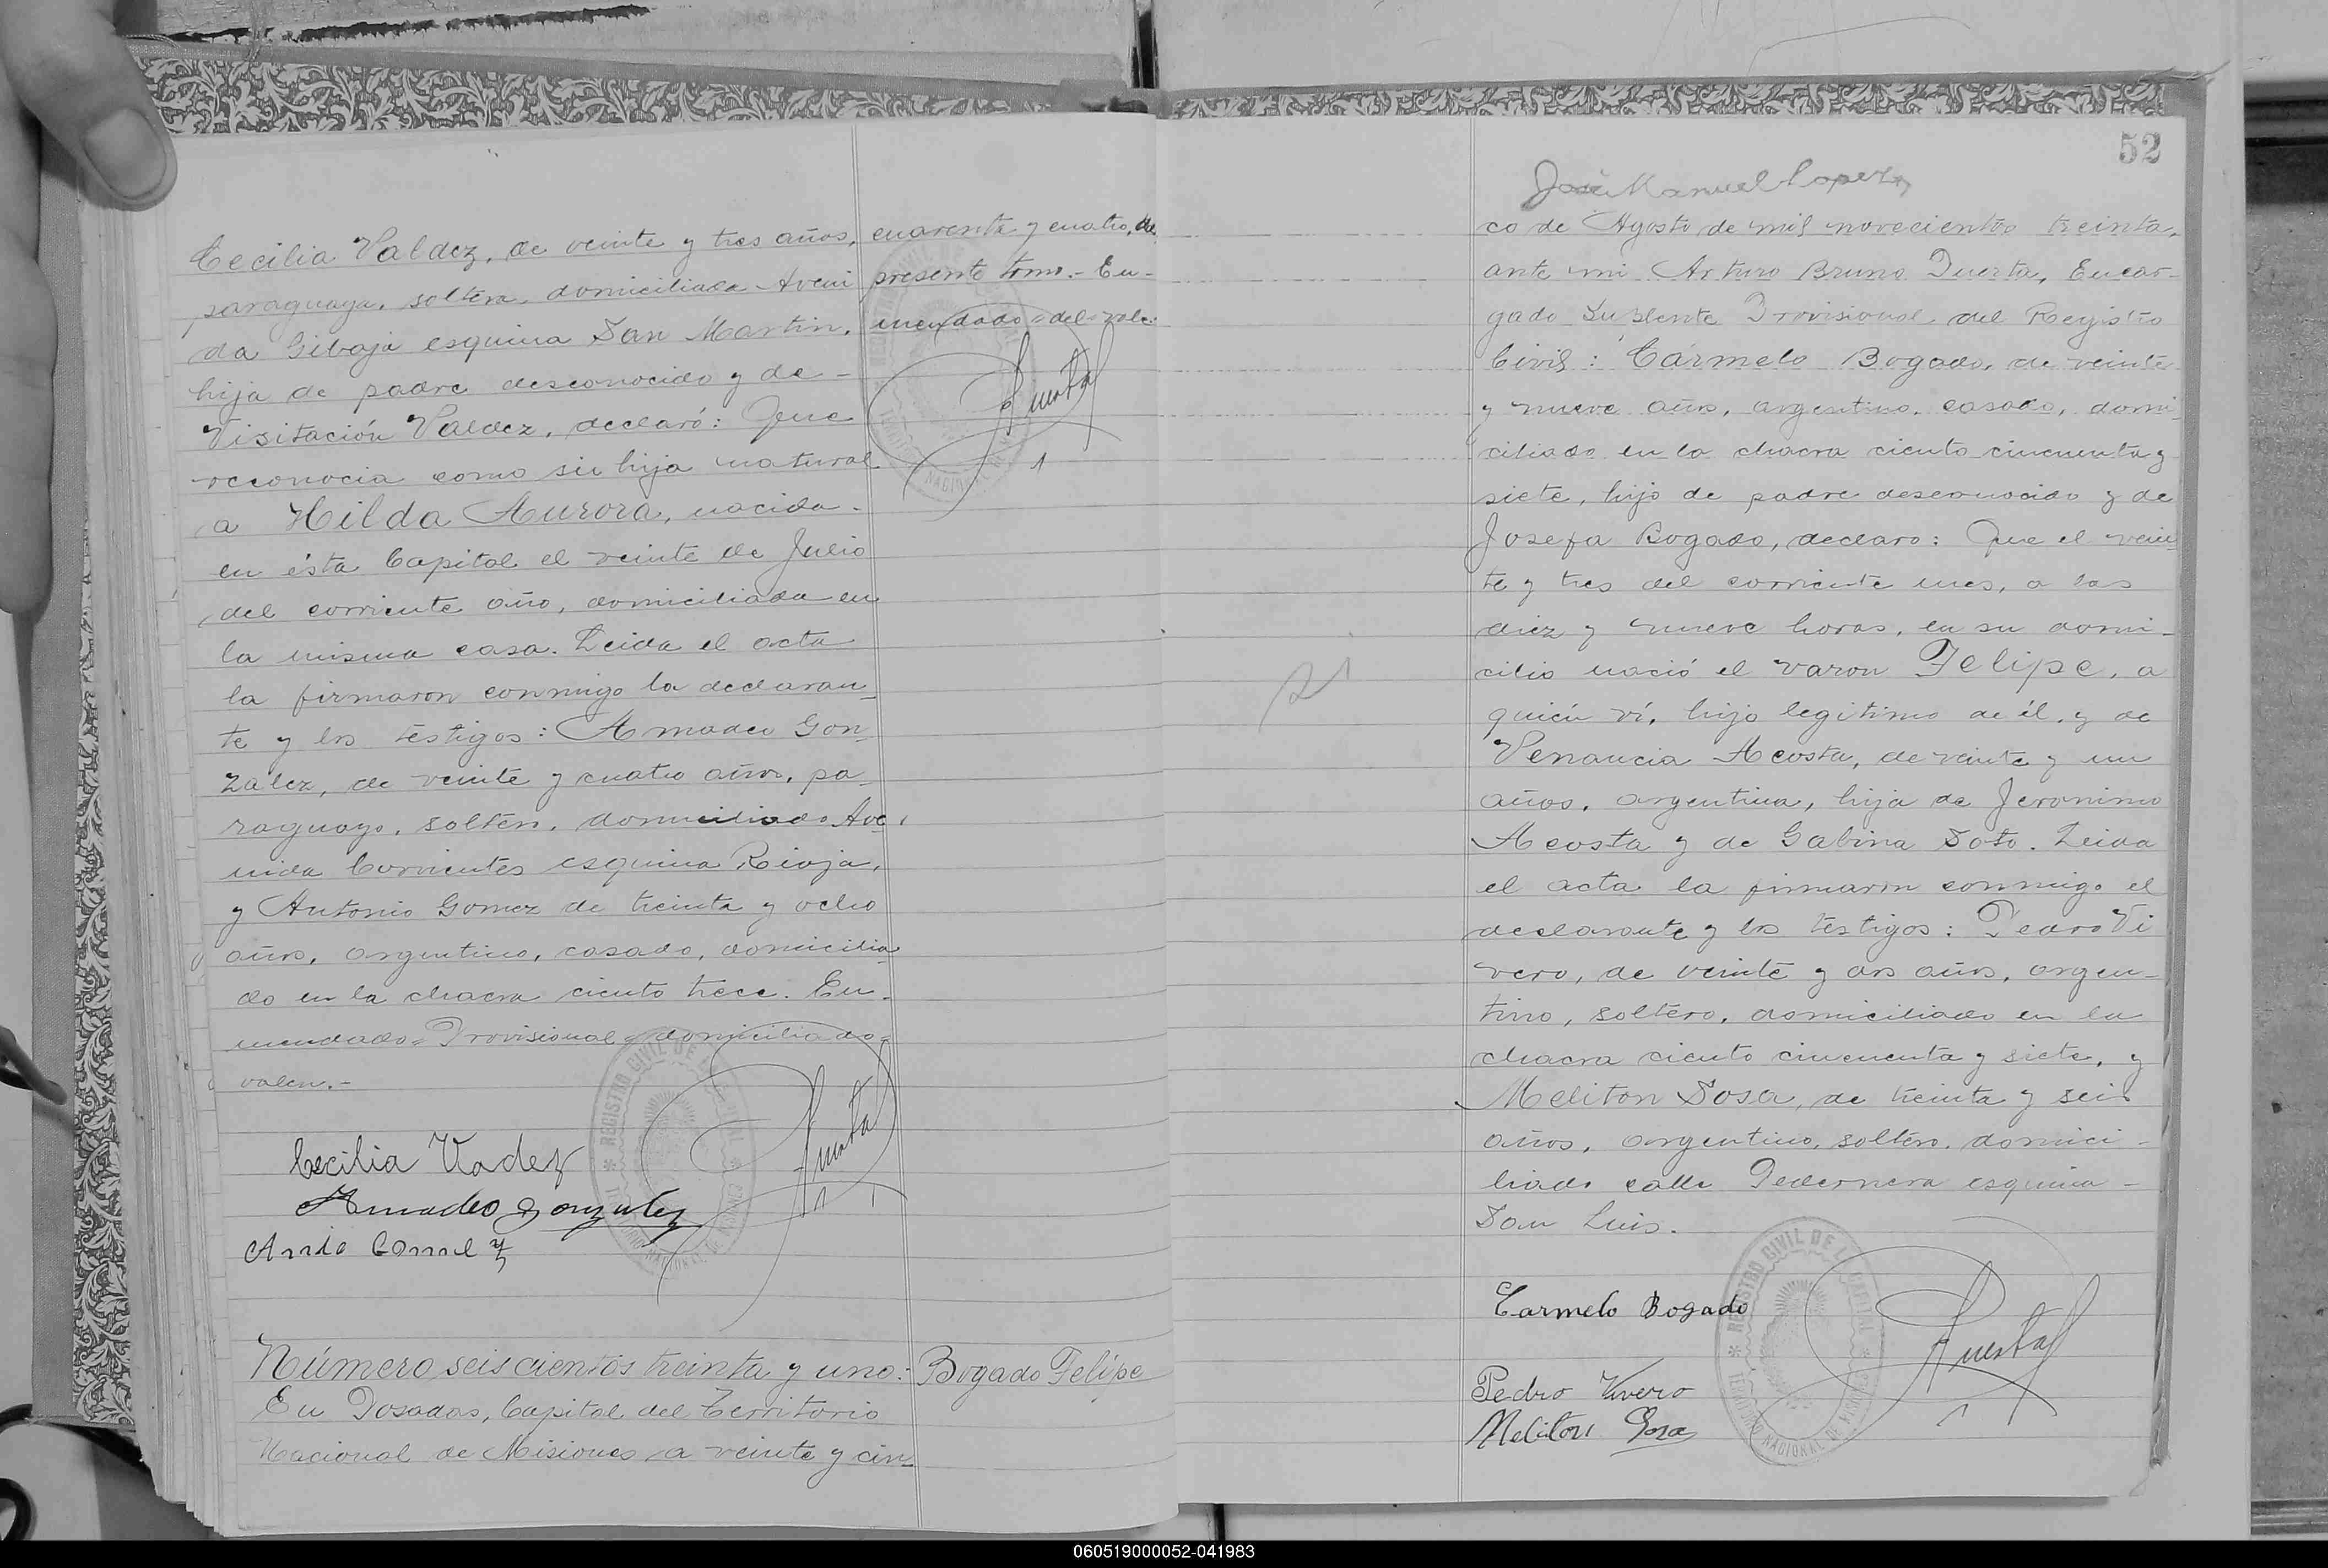 Cecilia Valdez, de veinte y tres años,
paraguaya, soltera, domiciliada Aveni
da Gibaja esquina San Martin,
hija de padre desconocido y de -
Visitación Valdez, declaró: Que
reconocia como su hija natural
a Hilda Aurora, nacida -
en ésta Capital el veinte de Julio
del corriente año, domiciliada en
la misma casa. Leida el acta
la firmaron conmigo la declaran-
te y los testigos: Amadeo Gon-
zález, de veinte y cuatro años, pa-
raguayo, soltero, domiciliado Ave-
nida Corrientes esquina Rioja,
y Antonio Gomez de treinta y ocho
años, argentino, casado, domicilia-
do en la chacra ciento trece. En-
mendado=Provisional=domiciliado=
valen.-
cuarenta y cuatro, del
presente tomo.- En-
mendado=del=vale.
Puerta
REGISTRO CIVIL DE LA CAPITAL
TERRITORIO NACIONAL DE MISIONES
Cecilia Vadez
Amadeo Gonzalez
Puerta
Número seiscientos treinta y uno:
En Posadas, Capital del Territorio
Nacional de Misiones a veinte y cin-
Bogado Felipe
52
José Manuel Lopez
co de Agosto de mil novecientos treinta,
ante mi Arturo Bruno Puerta, Encar-
gado Suplente Provisional del Registro
Civil: Carmelo Bogado, de veinte
y nueve años, argentino, casado, domi-
ciliado en la chacra ciento cincuenta y
siete, hijo de padre desconocido y de
Josefa Bogado, declaro: Que el vein-
te y tres del corriente mes, a las
diez y nueve horas, en su domi-
cilio nació el varon Felipe, a
quién ví, hijo legitimo de él, y de
Venancia Acosta, de veinte y un
años, argentina, hija de Jeronimo
Acosta y de Gabina Soto. Leida
el acta la firmaron conmigo el
declarante y los testigos: Pedro Vi
vero, de veinte y dos años, argen-
tino, soltero, domiciliado en la
chacra ciento cincuenta y siete, y
Meliton Sosa, de treinta y seis
años, argentino, soltero, domici-
liado calle Pedernera esquina -
San Luis.
21
Carmelo Bogado
Puerta
REGISTRO CIVIL DE LA CAPITAL
TERRITORIO NACIONAL DE MISIONES
Pedro Vivero
Meliton Sosa
060519000052-041983